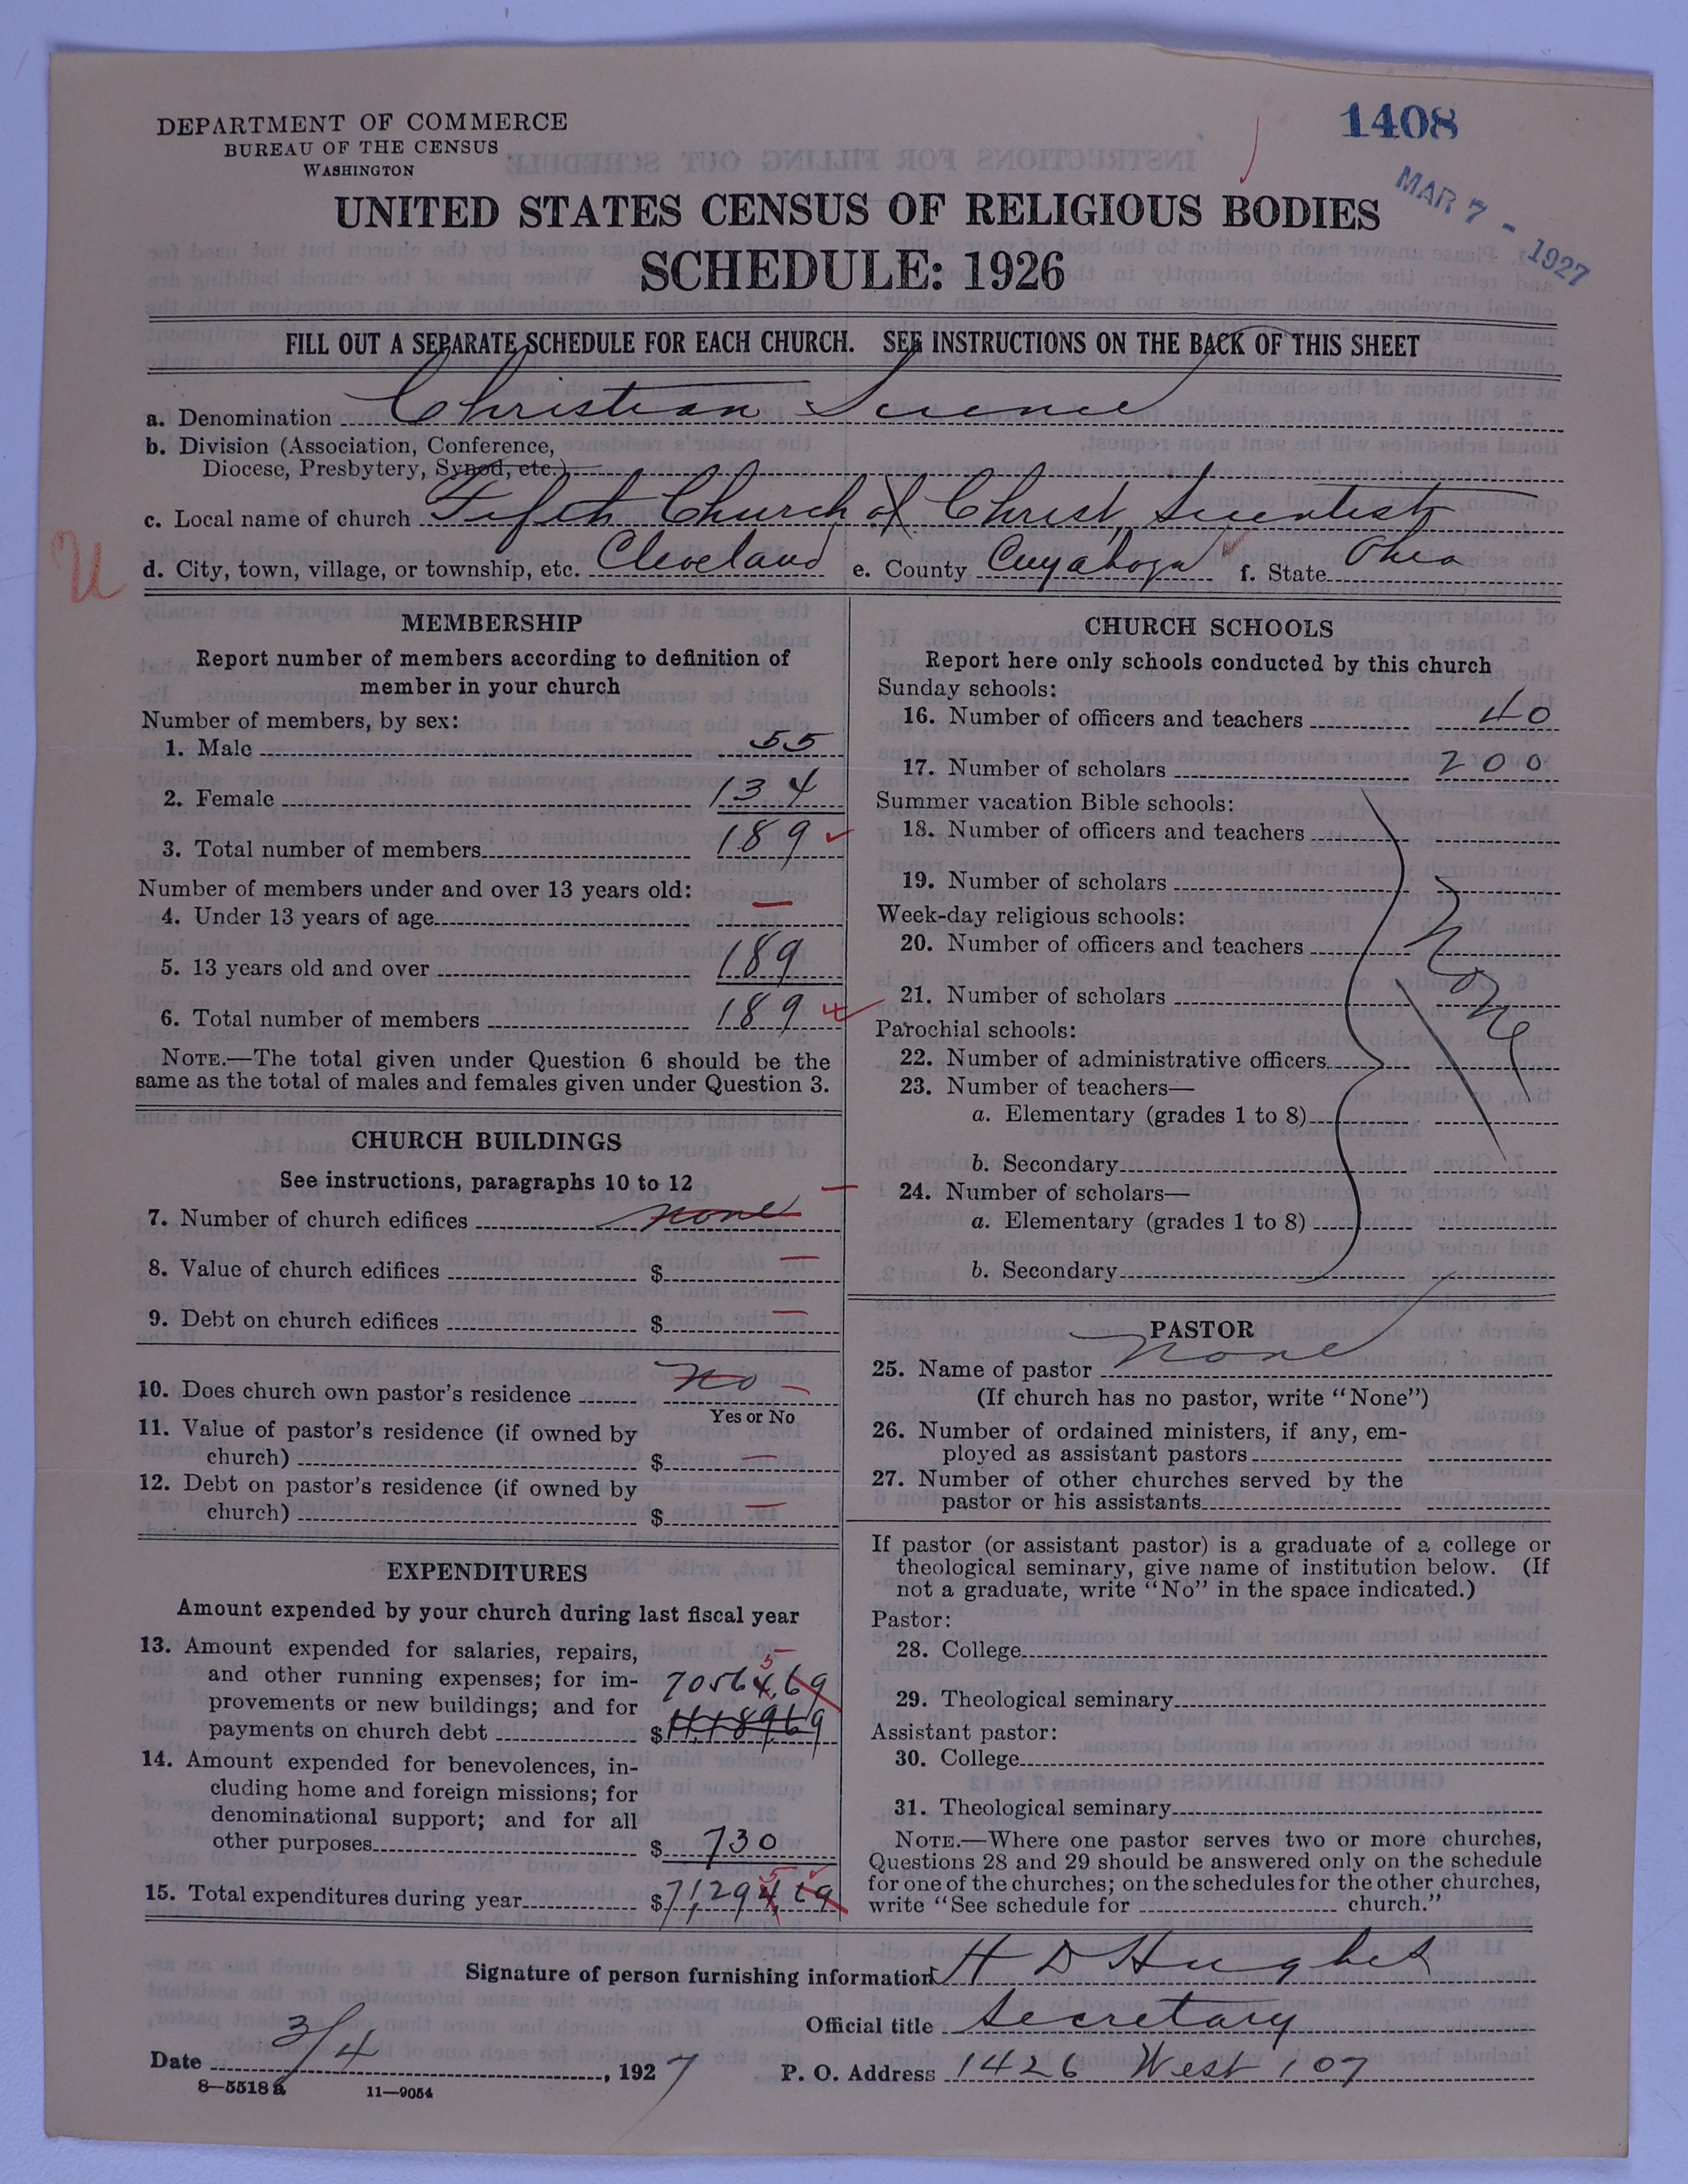 1408
MAR 7 - 1927
DEPARTMENT OF COMMERCE
BUREAU OF THE CENSUS
WASHINGTON
UNITED STATES CENSUS OF RELIGIOUS BODIES
SCHEDULE: 1926
FILL OUT A SEPARATE SCHEDULE FOR EACH CHURCH. SEE INSTRUCTIONS ON THE BACK OF THIS SHEET
a. Denomination Christian Science
b. Division (Association, Conference,
Diocese, Presbytery, Synod, etc.)
c. Local name of church Fifth Church of Christ, Scientist
U
d. City, town, village, or township, etc. Cleveland e. County Cuyahoga f. State Ohio
MEMBERSHIP
Report number of members according to definition of
member in your church
Number of members, by sex:
1. Male 55
2. Female 134
3. Total number of members 189
Number of members under and over 13 years old:
4. Under 13 years of age —
5. 13 years old and over 189
6. Total number of members 189
NOTE.—The total given under Question 6 should be the
same as the total of males and females given under Question 3.
CHURCH BUILDINGS
See instructions, paragraphs 10 to 12
7. Number of church edifices none —
8. Value of church edifices $ —
9. Debt on church edifices $ —
10. Does church own pastor's residence No —
Yes or No
11. Value of pastor's residence (if owned by
church) $ —
12. Debt on pastor's residence (if owned by
church) $ —
EXPENDITURES
Amount expended by your church during last fiscal year
13. Amount expended for salaries, repairs,
and other running expenses; for im-
provements or new buildings; and for
payments on church debt $
5
70564.69
14. Amount expended for benevolences, in-
cluding home and foreign missions; for
denominational support; and for all
other purposes $ 730
5
15. Total expenditures during year $71,294.69
CHURCH SCHOOLS
Report here only schools conducted by this church
Sunday schools:
16. Number of officers and teachers 40
17. Number of scholars 200
Summer vacation Bible schools:
18. Number of officers and teachers
19. Number of scholars
Week-day religious schools:
20. Number of officers and teachers
21. Number of scholars
None
Parochial schools:
22. Number of administrative officers
23. Number of teachers—
a. Elementary (grades 1 to 8)
b. Secondary
24. Number of scholars—
a. Elementary (grades 1 to 8)
b. Secondary
PASTOR
25. Name of pastor None
(If church has no pastor, write "None")
26. Number of ordained ministers, if any, em-
ployed as assistant pastors
27. Number of other churches served by the
pastor or his assistants
If pastor (or assistant pastor) is a graduate of a college or
theological seminary, give name of institution below. (If
not a graduate, write "No" in the space indicated.)
Pastor:
28. College
29. Theological seminary
Assistant pastor:
30. College
31. Theological seminary
NOTE.—Where one pastor serves two or more churches,
Questions 28 and 29 should be answered only on the schedule
for one of the churches; on the schedules for the other churches,
write "See schedule for church."
Signature of person furnishing information H D Hughes
Official title Secretary
Date 3/4, 1927 P. O. Address 1426 West 107
8—5518a 11—9054